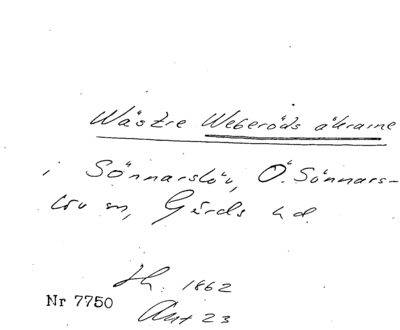 Wästre Weberöds åkrarne
i Sönnarslöv, Ö. Sönnars-
löv sn, Gärds hd
Sk. 1862
Nr 7750
Akt 23